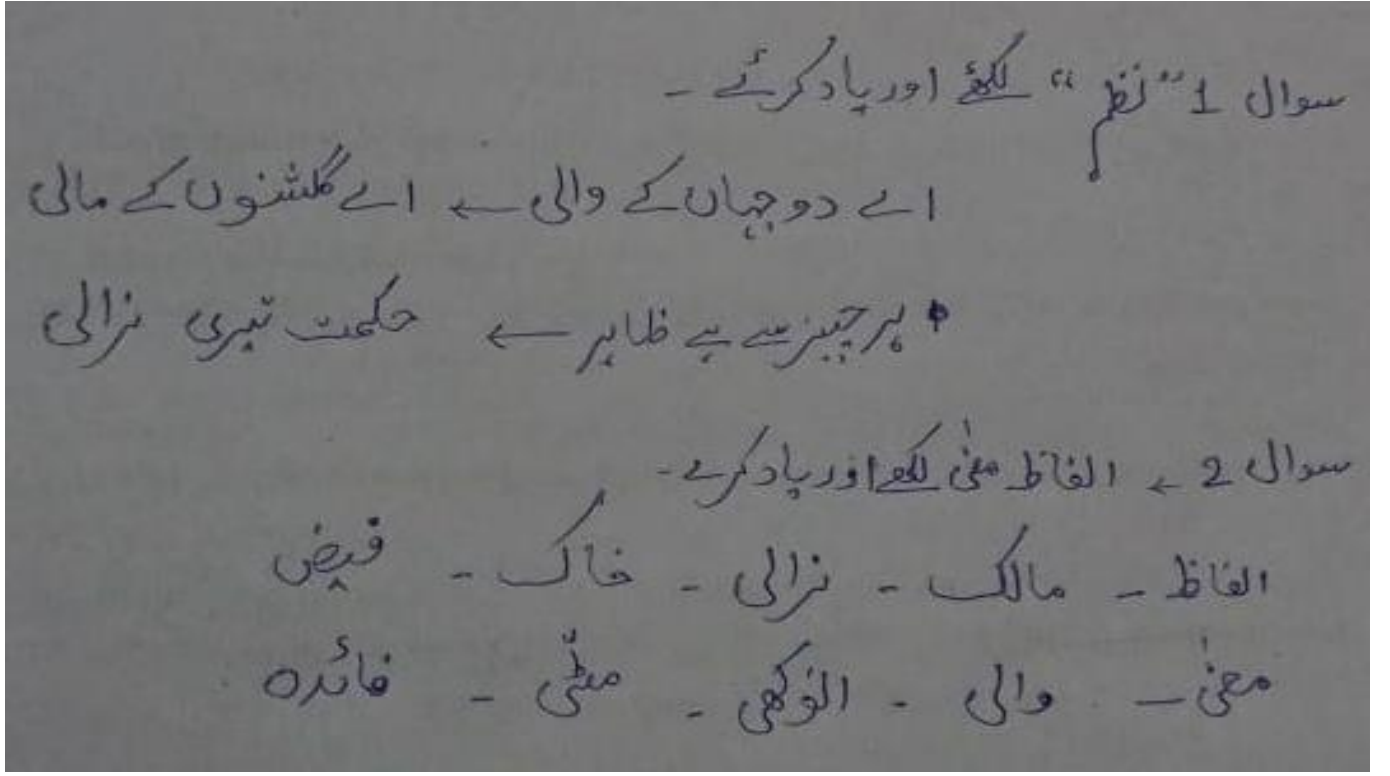 سوال 1 ”نظم“ لکھئے اور یاد کرئے ۔
اے دو جہاں کے والی ← اے گلشنوں کے مالی
ہر چیز سے ہے ظاہر ← حکمت تیری نرالی
سوال 2 ← الفاظ معنٰی لکھے اور یاد کرے ۔
الفاظ ۔ مالک ۔ نرالی ۔ خاک ۔ فیض
معنٰی ۔ والی ۔ انوکھی ۔ مٹّی ۔ فائدہ